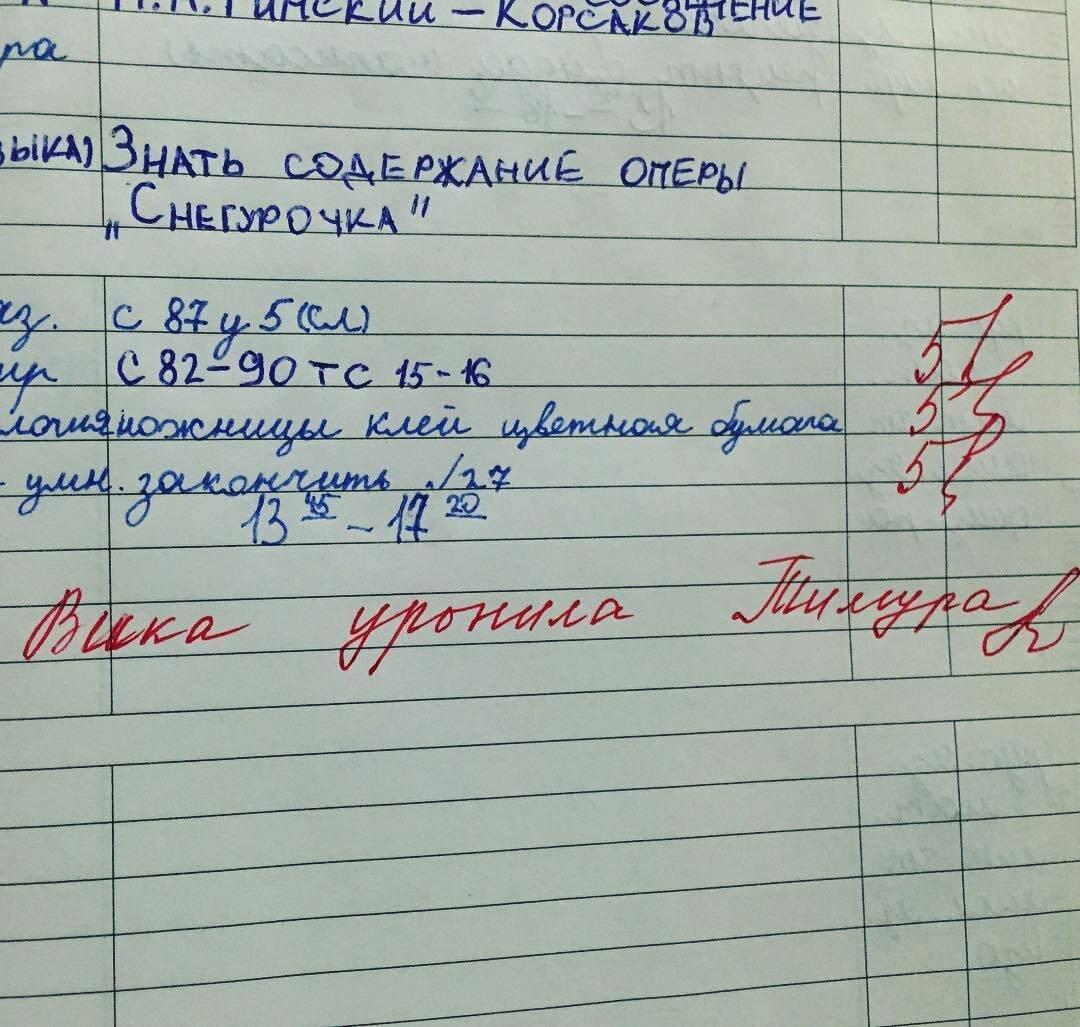 Н.А. Римский - Корсаков
ра
Знать содержание оперы
„Снегурочка"
с 87 у 5 (сл) 5
С 82-90 т с 15-16 5
ножницы клей цветная бумага 5
умн. закончить √127
13 45 - 17 20
Вика уронила Тимура